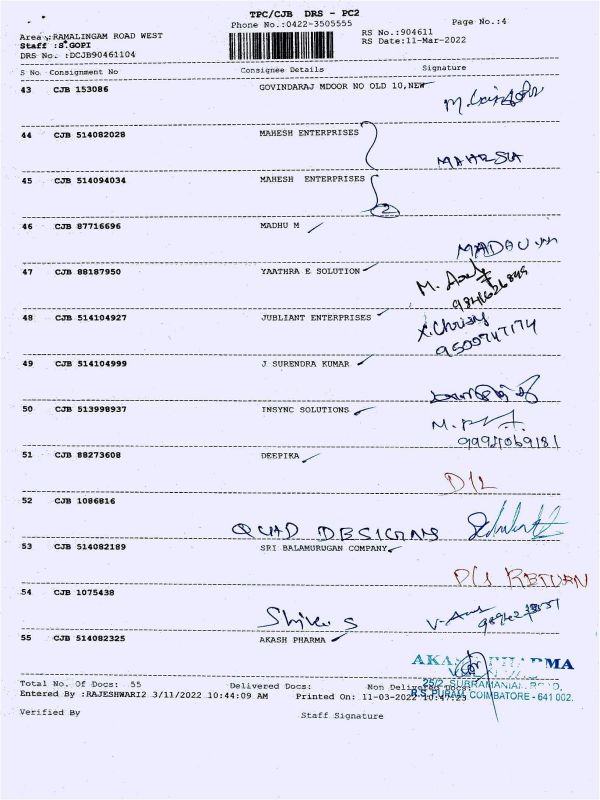 TPC/CJB DRS - PC2
Phone No.:0422-3505555 Page No.:4
Area :RAMALINGAM ROAD WEST RS No.:904611
Staff :S.GOPI RS Date:11-Mar-2022
DRS No. :DCJB90461104
S No Consignment No Consignee Details Signature
43 CJB 153086 GOVINDARAJ MDOOR NO OLD 10,NEW
44 CJB 514082028 MAHESH ENTERPRISES
MAHESH
45 CJB 514094034 MAHESH ENTERPRISES
2
46 CJB 87716696 MADHU M
47 CJB 88187950 YAATHRA E SOLUTION
M.
48 CJB 514104927 JUBLIANT ENTERPRISES
9509747174
49 CJB 514104999 J SURENDRA KUMAR
50 CJB 513998937 INSYNC SOLUTIONS
M.
51 CJB 88273608 DEEPIKA
D/L
52 CJB 1086816
QUAD DESIGNS
53 CJB 514082189 SRI BALAMURUGAN COMPANY
RETURN
54 CJB 1075438
55 CJB 514082325 AKASH PHARMA
AKASH PHARMA
Total No. Of Docs: 55 Delivered Docs: Non Delivered Docs:
25/2, SUBRAMANIAM ROAD,
Entered By :RAJESHWARI2 3/11/2022 10:44:09 AM Printed On: 11-03-2022 10:47:23
R.S. PURAM, COIMBATORE - 641 002.
Verified By Staff Signature